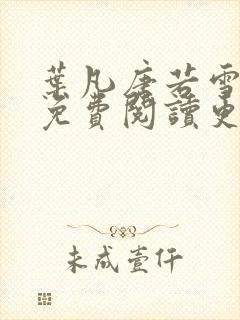 葉凡唐若雪
免費閱讀更
未成壹仟